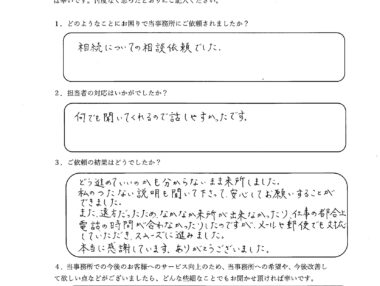 は幸いです。忌憚なく思ったとおりにご記入ください。
1．どのようなことにお困りで当事務所にご依頼されましたか？
相続についての相談依頼でした。
2．担当者の対応はいかがでしたか？
何でも聞いてくれるので話しやすかったです。
3．ご依頼の結果はどうでしたか？
どう進めていいのかも分からないまま来所しました。
私のつたない説明も聞いて下さって、安心してお願いすることが
できました。
また、遠方だったため、なかなか来所が出来なかったり、仕事の都合上
電話の時間が合わなかったりしたのですが、メールや郵便でも対応
していただき、スムーズに進みました。
本当に感謝しています。ありがとうございました。
4．当事務所での今後のお客様へのサービス向上のため、当事務所への希望や、今後改善し
て欲しい点などがございましたら、どんな些細なことでもお聞かせ頂ければ幸いです。